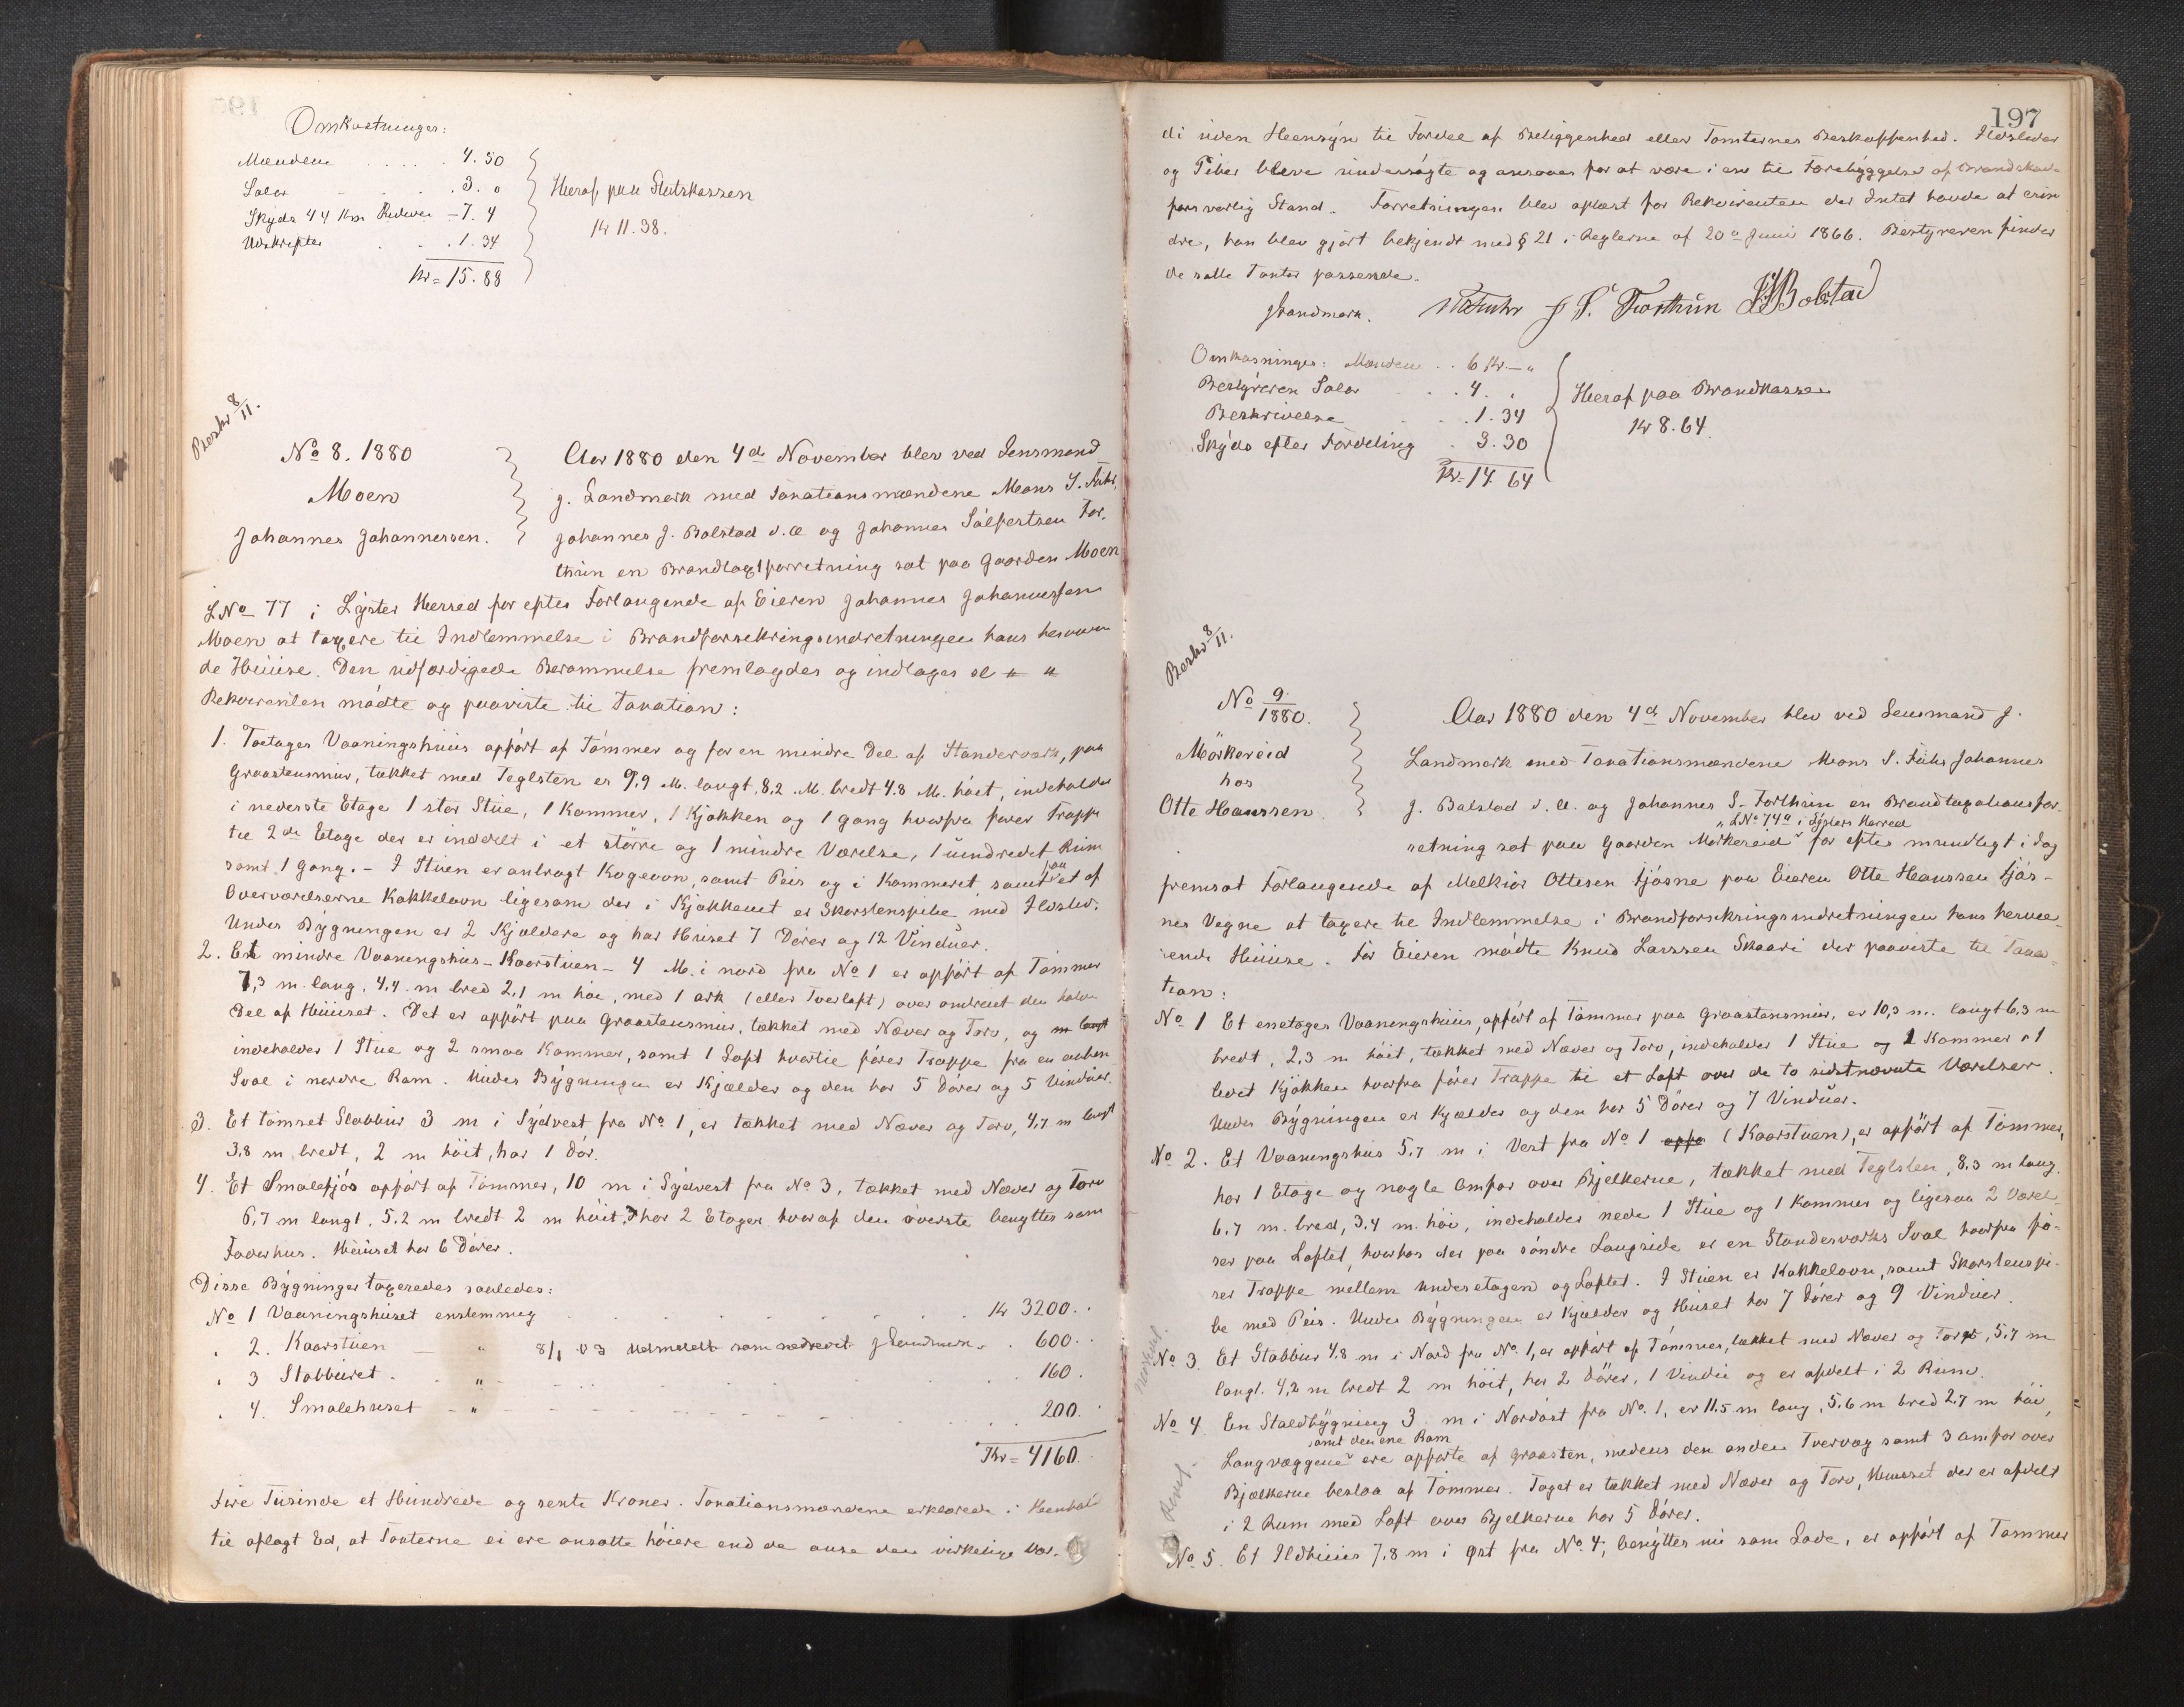 Omkostninger:
Mændene . . . . 4.50
Salær . . . 3. "
Skyds 44 Km — 7.4
Udskrifter . . . 1.34
Kr = 15.88
Heraf paa
Kr 11.38.
Beskr 8/11.
No 8. 1880
Moen
Johannes Johannessen.
Aar 1880 den 4de November blev ved Lensmand
J. Landmark med Taxationsmændene Mons S. Fuhr,
Johannes J. Bolstad d. æ og Johannes Sjulfestsen For,
thun en Brandtaxtforretning sat paa Gaarden Moen
LNo 77 i Lyster Herred for efter Forlangende af Eieren Johannes Johannessen
Moen at taxere til Indlemmelse i Brandforsikringsindretningen hans
de Huuse. Den udfærdigede Berammelse fremlagdes og indtages
Rekvirenten mødte og paaviste til Taxation:
1. Toetages Vaaningshuus opført af Tømmer og for en mindre Del af Standerværk, paa
Graastensmur, tækket med Teglsten er 9,9 M. langt, 8,2 M. bredt 4.8 M. høit, indeholder
i nederste Etage 1 stor Stue, 1 Kammer, 1 Kjøkken og 1 Gang hvorfra fører Trappe
til 2de Etage der er inddelt i et større og 1 mindre Værelse, 1 uindredet Rum
samt 1 Gang. – I Stuen er anbragt Kogeovn, samt Peis og i Kammeret samt paa et af
Overværelserne Kakkelovn ligesom der i Kjøkkenet er Skorstenspibe med Ildsted.
Under Bygningen er 2 Kjældere og har Huset 7 Dører og 12 Vinduer.
2. Et mindre Vaaningshus – Kaarstuen – 4 M. i nord fra No 1 er opført af Tømmer
7,3 m lang, 4,4 m bred 2,1 m høi, med 1 ark (eller Tverloft) over omtrent den halve
Del af Huuset. Det er opført paa Graastensmur, tækket med Næver og Torv, og
indeholder 1 Stue og 2 smaa Kammer, samt 1 Loft hvortil fører Trappe fra en aaben
Sval i nordre Ram. Under Bygningen er Kjælder og den har 5 Dører og 5 Vinduer.
3. Et tømret Stabbur 3 m i Sydvest fra No 1, er tækket med Næver og Torv, 4,7 m langt
3.8 m bredt, 2 m høit, har 1 Dør.
4. Et Smalefjøs opført af Tømmer, 10 m i Sydvest fra No 3, tækket med Næver og Torv
6,7 m langt, 5.2 m bredt 2 m høit, har 2 Etager hvoraf den øverste benyttes som
Foderhus. Huuset har 6 Dører.
Disse Bygninger taxeredes saaledes:
No 1 Vaaningshuset enstemmig . . . . . Kr 3200. .
" 2. Kaarstuen — " 8/1 03 udmeldt som nedrevet J Landmark. . 600. .
" 3 Stabburet . — " . . . . . 160.
" 4. Smalehuset — " . . . . . 200.
Kr = 4160.
Fire Tusinde et Hundrede og sexti Kroner. Taxationsmændene erklærede i Henhold
til aflagt Ed, at Taxterne ei ere ansatte høiere end de anse den virkelige Vær-
197
di uden Hensyn til Fordel af Beliggenhed eller Tomternes Beskaffenhed. Ildsteder
og Piber bleve undersøgte og ansaaes for at være i en til Forebyggelse af Brandskade
forsvarlig Stand. Forretningen blev oplæst for Rekvirenten der Intet havde at erin
dre, han blev gjort bekjendt med § 21 i Reglerne af 20de Juni 1866. Bestyreren finder
de satte Taxter passende.
J Landmark. M S Fuhr J S. Forthun J J Bolstad
Omkosninger: Mændene . . 6 Kr — "
Bestyreren Salær . . . 4. "
Beskrivelse . . . 1.34
Skyds efter Fordeling . 3.30
Kr = 14 64
Heraf paa Brandkassen
Kr 8.64.
Beskr 8/11.
No 9/1880.
Mørkereid
hos
Otte Hanssen
Aar 1880 den 4de November blev ved Lensmand J.
Landmark med Taxationsmændene Mons S. Fuhr Johannes
J. Bolstad d. æ. og Johannes S. Forthun en Brandtaxationsfor
"LNo 74a i Lysters Herred
retning sat paa Gaarden Mørkereid for efter mundtligt i Dag
fremsat Forlangende af Melkior Ottesen Fjøsne paa Eieren Otte Hanssen Fjøs-
nes Vegne at taxere til Indlemmelse i Brandforsikringsindretningen hans hervæ
rende Huuse. For Eieren mødte Knud Larssen Skaari der paaviste til Taxa-
tion:
No 1 Et enetages Vaaningshuus, opført af Tømmer paa Graastensmur, er 10,3 m. langt 6,3 m
bredt, 2,3 m høit, tækket med Næver og Torv, indeholder 1 Stue og 1 Kammer & 1
lidet Kjøkken hvorfra fører Trappe til et Loft over de to sidstnævnte Værelser.
Under Bygningen er Kjælder og den har 5 Dører og 7 Vinduer.
No 2. Et Vaaningshus 5.7 m i Vest fra No 1 (Kaarstuen), er opført af Tømmer,
har 1 Etage og nogle Omfar over Bjelkerne, tækket med Teglsten, 8.3 m lang
6.7 m. bred, 3,4 m. høi, indeholder nede 1 Stue og 1 Kammer og ligesaa 2 Værel
ser paa Loftet, hvorhos der paa søndre Langside er en Standerværks Sval hvorfra fø-
rer Trappe mellem Underetagen og Loftet. I Stuen er Kakkelovn, samt Skorstenspi-
be med Peis. Under Bygningen er Kjælder og Huset har 7 Dører og 9 Vinduer.
No 3. Et Stabbur 4.8 m i Nord fra No. 1, er opført af Tømmer, tækket med Næver og Torv, 5.7 m
langt. 4,2 m bredt 2 m høit, har 2 Dører, 1 Vindu og er afdelt i 2 Rum.
No 4 En Staldbygning 3 m i Nordøst fra No. 1, er 11.5 m lang, 5.6 m bred 2.7 m høi,
samt den ene Ram
Langvæggene ere opførte af Graasten, medens den anden Tvervæg samt 3 Omfar over
Bjælkerne bestaa af Tømmer. Taget er tækket med Næver og Torv, Huuset der er afdelt
i 2 Rum med Loft over Bjelkerne har 5 Dører.
No 5. Et Ildhuus 7.8 m i Øst fra No. 4, benyttes nu som Lade, er opført af Tømmer